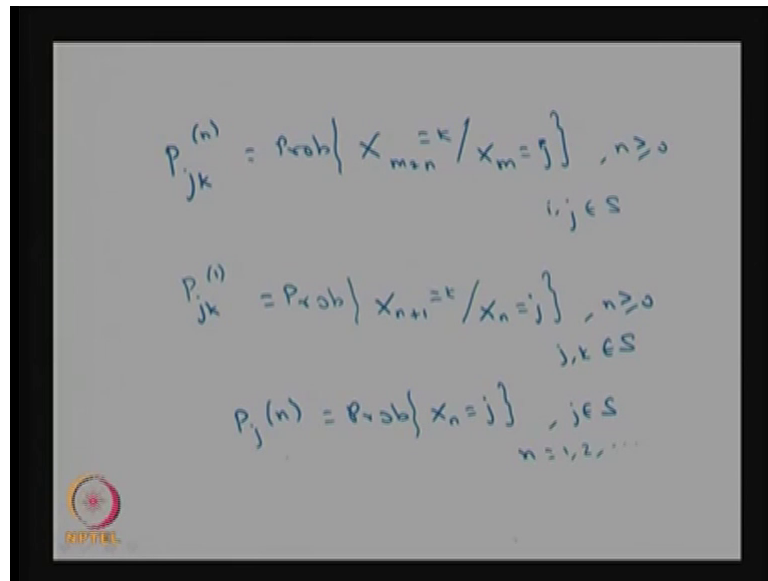 P_{jk}^{(n)} = Prob{ X_{m+n} = k / X_m = j } , n ≥ 0
i, j ∈ S
P_{jk}^{(1)} = Prob{ X_{n+1} = k / X_n = j } , n ≥ 0
j, k ∈ S
P_j(n) = Prob{ X_n = j } , j ∈ S
n = 1, 2, ...
NPTEL